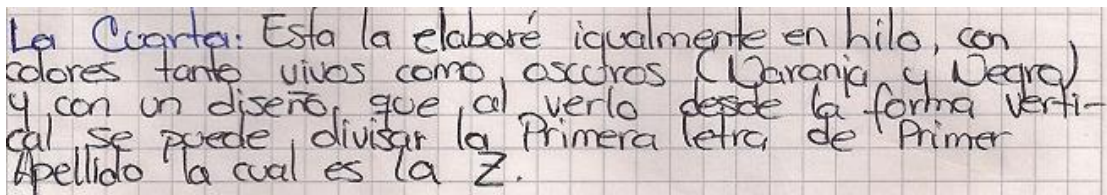 La Cuarta: Esta la elaboré igualmente en hilo, con
colores tanto vivos como oscuros (Naranja y Negro)
y con un diseño, que al verlo desde la forma verti-
cal se puede divisar la Primera letra de Primer
Apellido la cual es la Z.